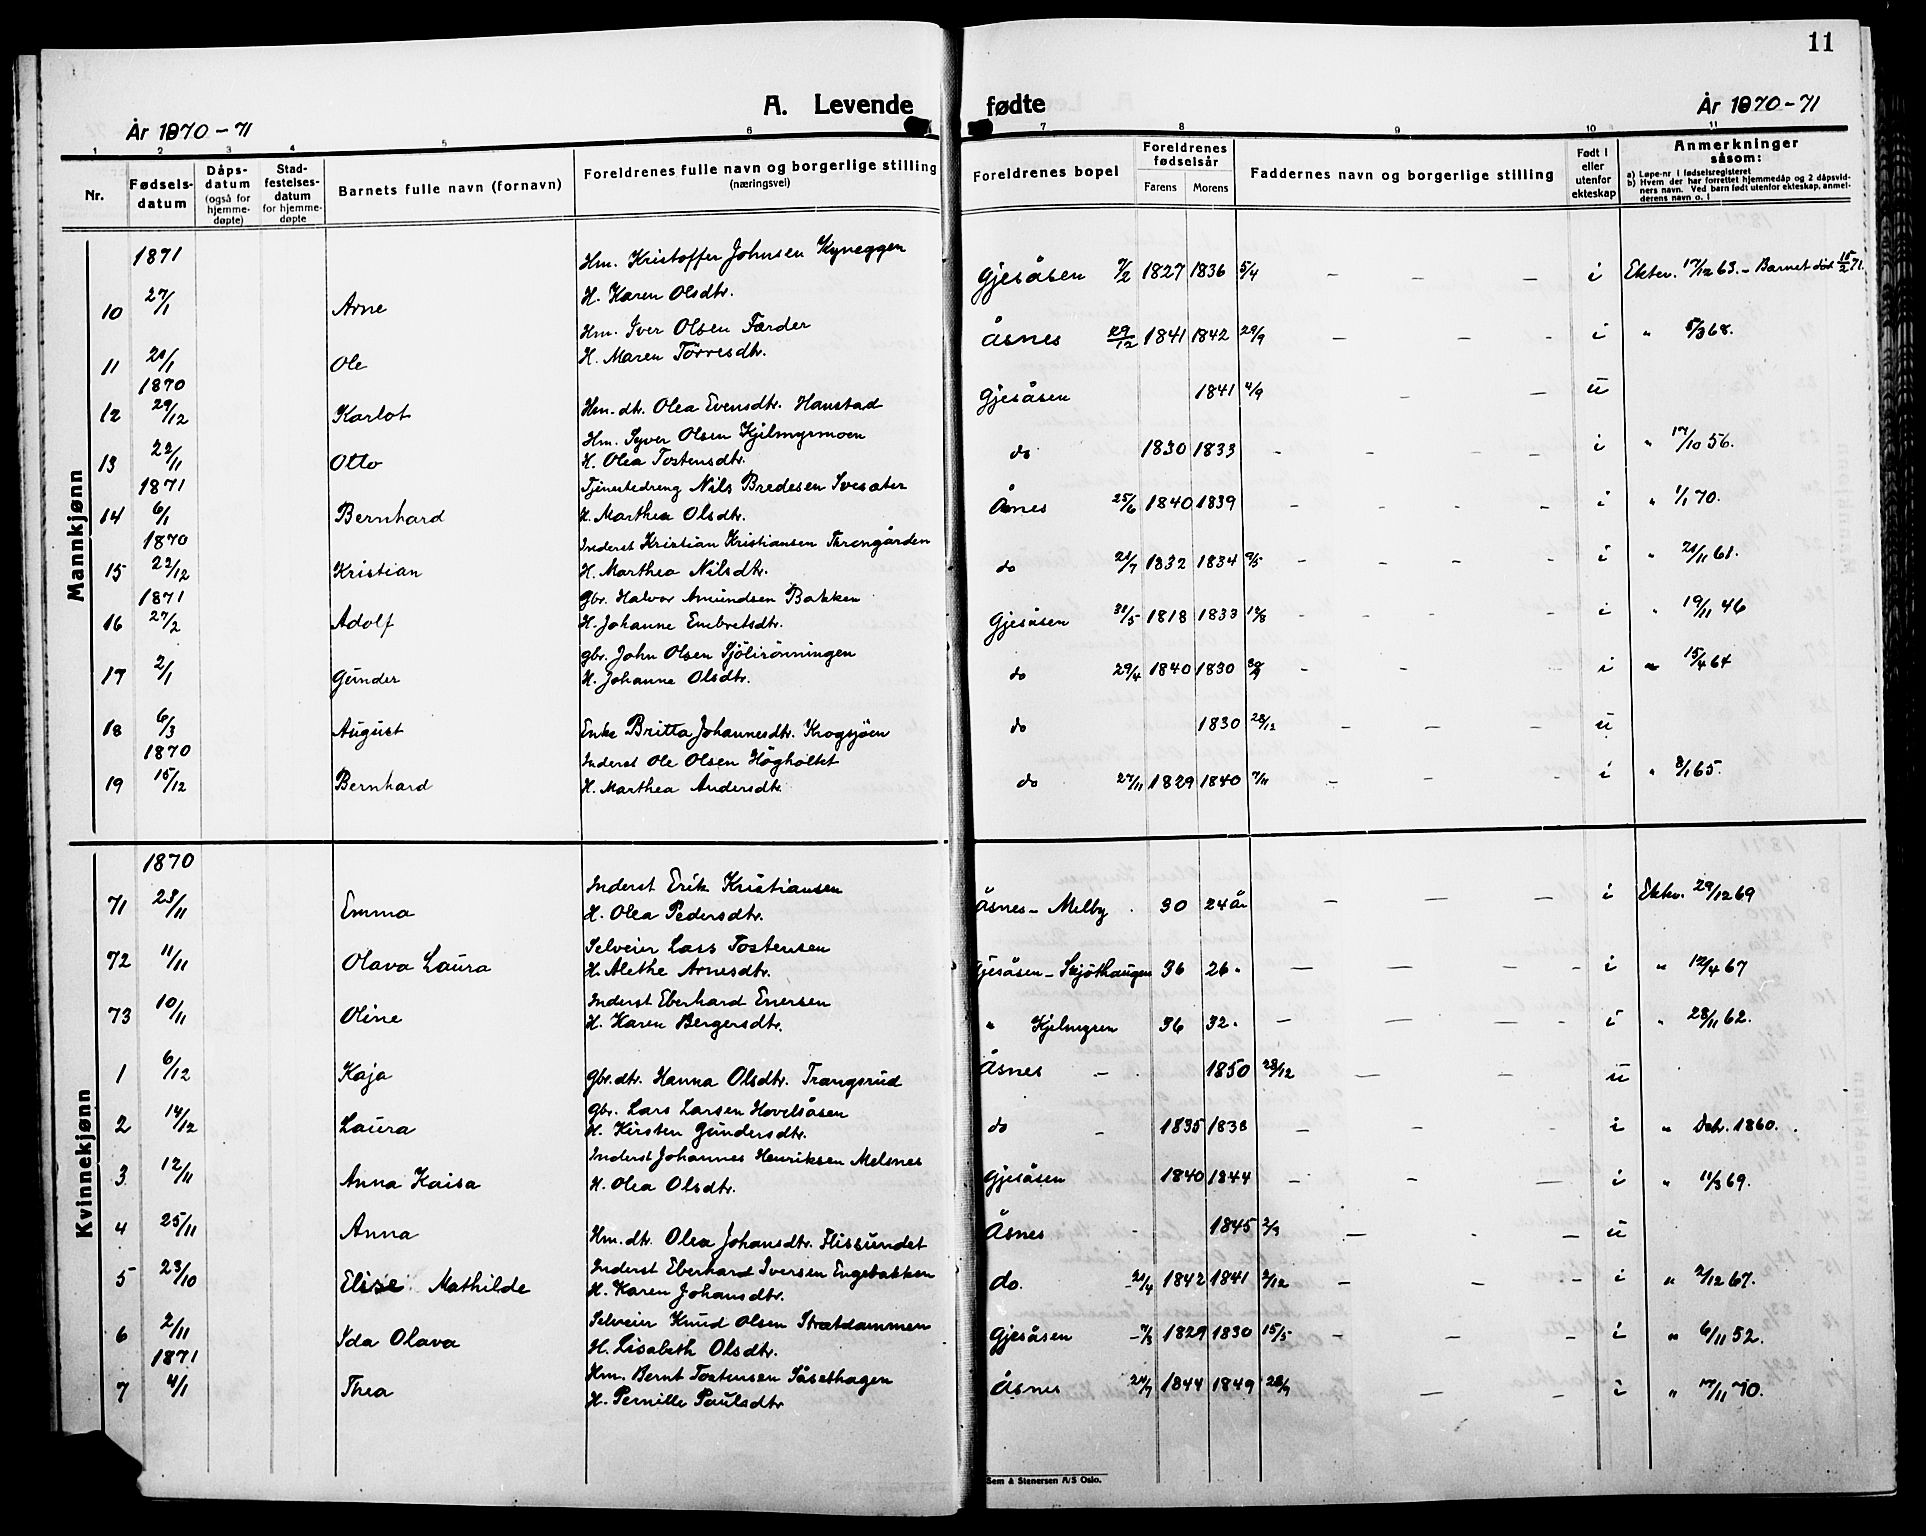 11
A. Levende fødte
År 1870-71
År 1870-71
1 2 3 4 5 6 7 8 9 10 11
Nr.
Fødsels-datum
Dåps-datum (også for hjemme-døpte)
Stad-festelses-datum for hjemme-døpte
Barnets fulle navn (fornavn)
Foreldrenes fulle navn og borgerlige stilling (næringsvei)
Foreldrenes bopel
Foreldrenes fødselsår
Farens Morens
Faddernes navn og borgerlige stilling
Født i eller utenfor ekteskap
Anmerkninger såsom:
a) Løpe-nr i fødselsregisteret
b) Hvem der har forrettet hjemmedåp og 2 dåpsvid-
ners navn. Ved barn født utenfor ekteskap, anmel-
derens navn o. l
Mannkjønn
1871 Hm. Kristoffer Johnsen Kyneggen
10 27/1 Arne H. Karen Olsdtr. Gjesåsen 7/2 1827 1836 5/4 – – – i Ektev. 17/12 63. – Barnet död 15/2 71.
Hm. Iver Olsen Færder
11 21/1 Ole H. Maren Törresdtr. Åsnes 29/12 1841 1842 29/9 – – - i " 5/3 68.
1870
12 29/12 Karlot Hm. dtr. Olea Evensdtr. Hanstad Gjesåsen 1841 4/9 – – u
Hm. Syver Olsen Kjilmyrmoen
13 22/11 Otto H. Olea Tostensdtr. do 1830 1833 - - - – i " 17/10 56.
1871 Tjenestedreng Nils Bredesen Svesæter
14 6/1 Bernhard H. Marthea Olsdtr. Åsnes 25/6 1840 1839 – - - - i " 1/1 70.
1870 Inderst Kristian Kristiansen Throngården
15 22/12 Kristian H. Marthea Nilsdtr. do 21/7 1832 1834 9/5 – - - - i " 21/11 61.
1871 Gbr. Halvor Amundsen Bakken
16 27/2 Adolf H. Johanne Embretsdtr. Gjesåsen 31/5 1818 1833 12/8 - - - - i " 19/11 46
Gbr. John Olsen Sjölirönningen
17 2/1 Gunder H. Johanne Olsdtr. do 29/4 1840 1830 - - - i " 15/4 64
18 6/3 August Enke Britta Johannesdtr. Krogsjöen do 1830 28/12 – – - u
1870 Inderst Ole Olsen Högholtet
19 15/12 Bernhard H. Marthea Andersdtr do 27/11 1829 1840 7/11 – – – - i " 8/1 65.
Kvinnekjønn
1870 Inderst Erik Kristiansen
71 23/11 Emma H. Olea Pedersdtr. Åsnes – Melby . 30 24 år – – – i Ektev. 29/12 69
Selveier Lars Tostensen
72 11/11 Olava Laura H. Alethe Arnesdtr. Gjesåsen – Skjöthaugen 36 26 " — — — - i " 12/4 67
Inderst Eberhard Enersen
73 10/11 Oline H. Karen Bergersdtr. " Kjelmyren 36 32 " — — — – i " 28/11 62.
1 6/12 Kaja Gbr. dtr. Hanna Olsdtr. Trangsrud Åsnes – 1850 28/12 — — — u
Gbr. Lars Larsen Hovelsåsen
2 14/12 Laura H. Kirsten Gundersdtr. do – 1835 1838 – – – – i " Debr. 1860.
Inderst Johannes Henriksen Melsnes
3 12/11 Anna Kaisa H. Olea Olsdtr. Gjesåsen 1840 1844 – – – – i " 11/3 69.
4 25/11 Anna Hm. dtr. Olea Johansdtr. Flissundet Åsnes - 1845 2/9 — – — u
Inderst Eberhard Iversen Engebakken
5 23/10 Elise Mathilde H. Karen Johansdtr. do. 21/4 1842 1841 2/12 – – – i " 2/12 67.
Selveier Knud Olsen Strætdammen
6 2/11 Ida Olava H. Lisabeth Olsdtr. Gjesåsen 7/3 1829 1830 15/5 – – – i " 6/11 52.
1871 Hm. Bernt Tostensen Såsethagen
7 4/1 Thea H. Pernille Paulsdtr Åsnes 24/7 1844 1849 28/9 – – i " 17/11 70.
Sem & Stenersen A/S Oslo.